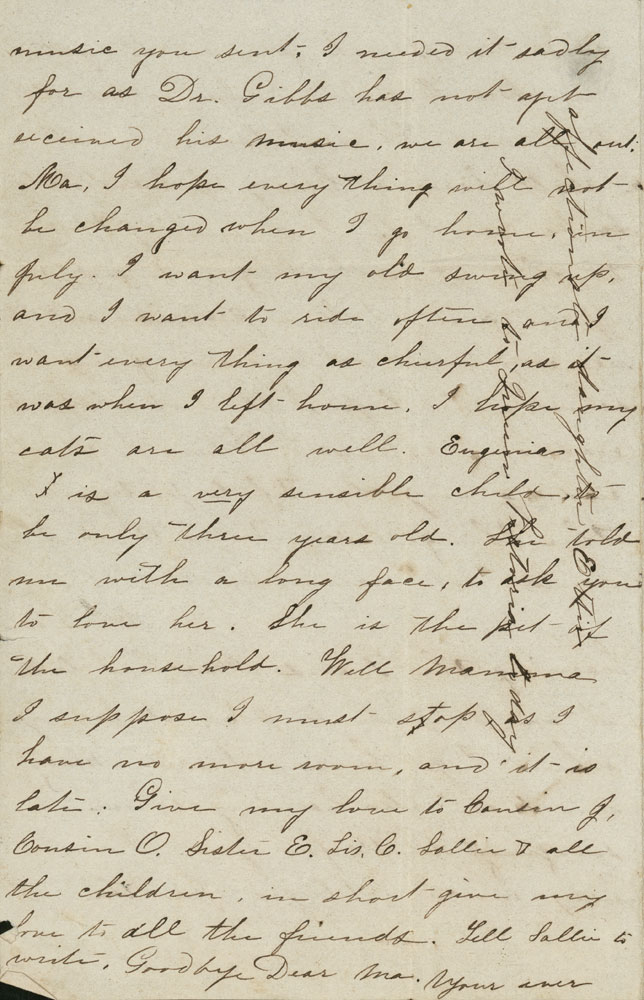 music you sent, I needed it sadly
for as Dr. Gibbs has not apt
received his music, we are all out.
Ma, I hope every thing will not
be changed when I go home, in
July. I want my old swing up,
and I want to ride often and I
want every thing as cheerful, as it
was when I left home. I hope my
cats are all well. Eugenia
is a very sensible child, to
be only three years old. She told
me with a long face, to ask you
to love her. She is the pet of
the household. Well Mamma
I suppose I must stop as I
have no more room, and it is
late. Give my love to Cousin J,
Cousin O. Sister E. Sis. C. Sallie & all
the children, in short give my
love to all the friends. Tell Sallie to
write. Goodbye Dear Ma. Your ever
affectionate daughter Ettie
I wrote to Queen Victoria to day